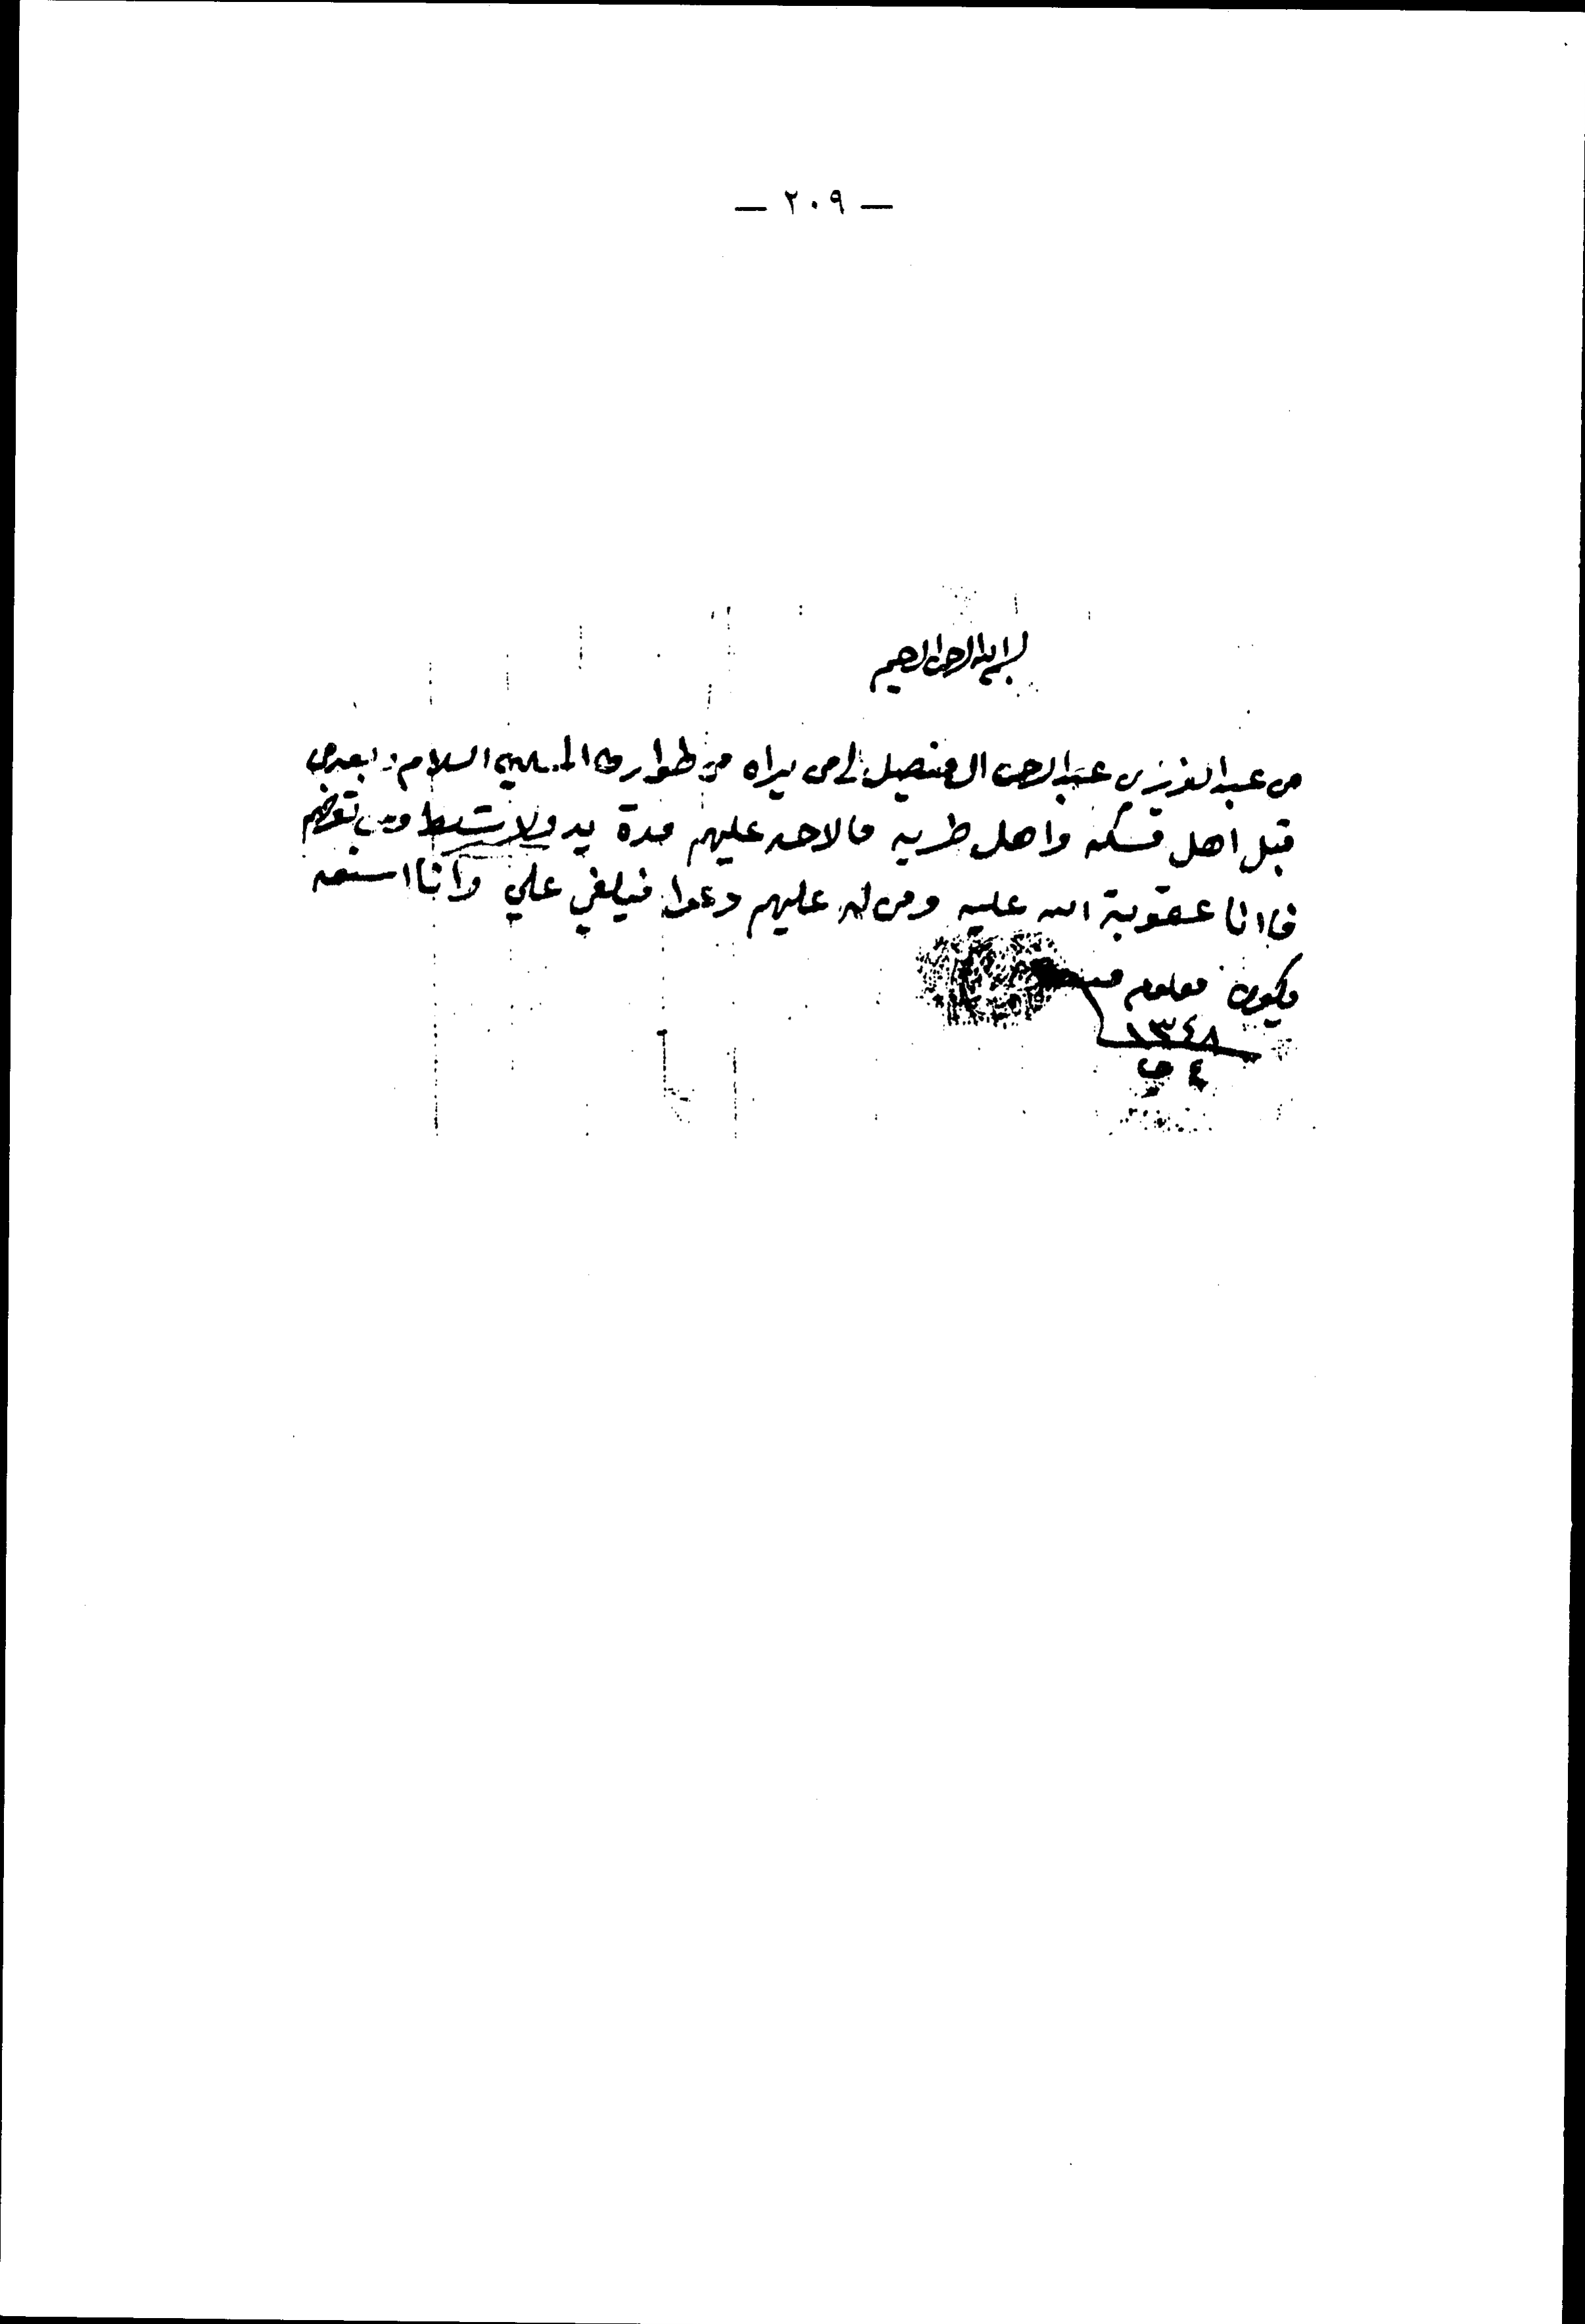 — ٢٠٩ —
بسم الله الرحمن الرحيم
من عبد العزيز بن عبد الرحمن ال فيصل الى من يراه من طوارف المسلمين السلام وبعد من
قبل اهل مسكه واهل ضريه مالاحد عليهم مدة يد ولا ومن تعرضهم
فاانا عقوبة الله عليه ومن له عليهم دعوا فيلفي علي وانا
يكون معلوم
١٣٤٨
٤